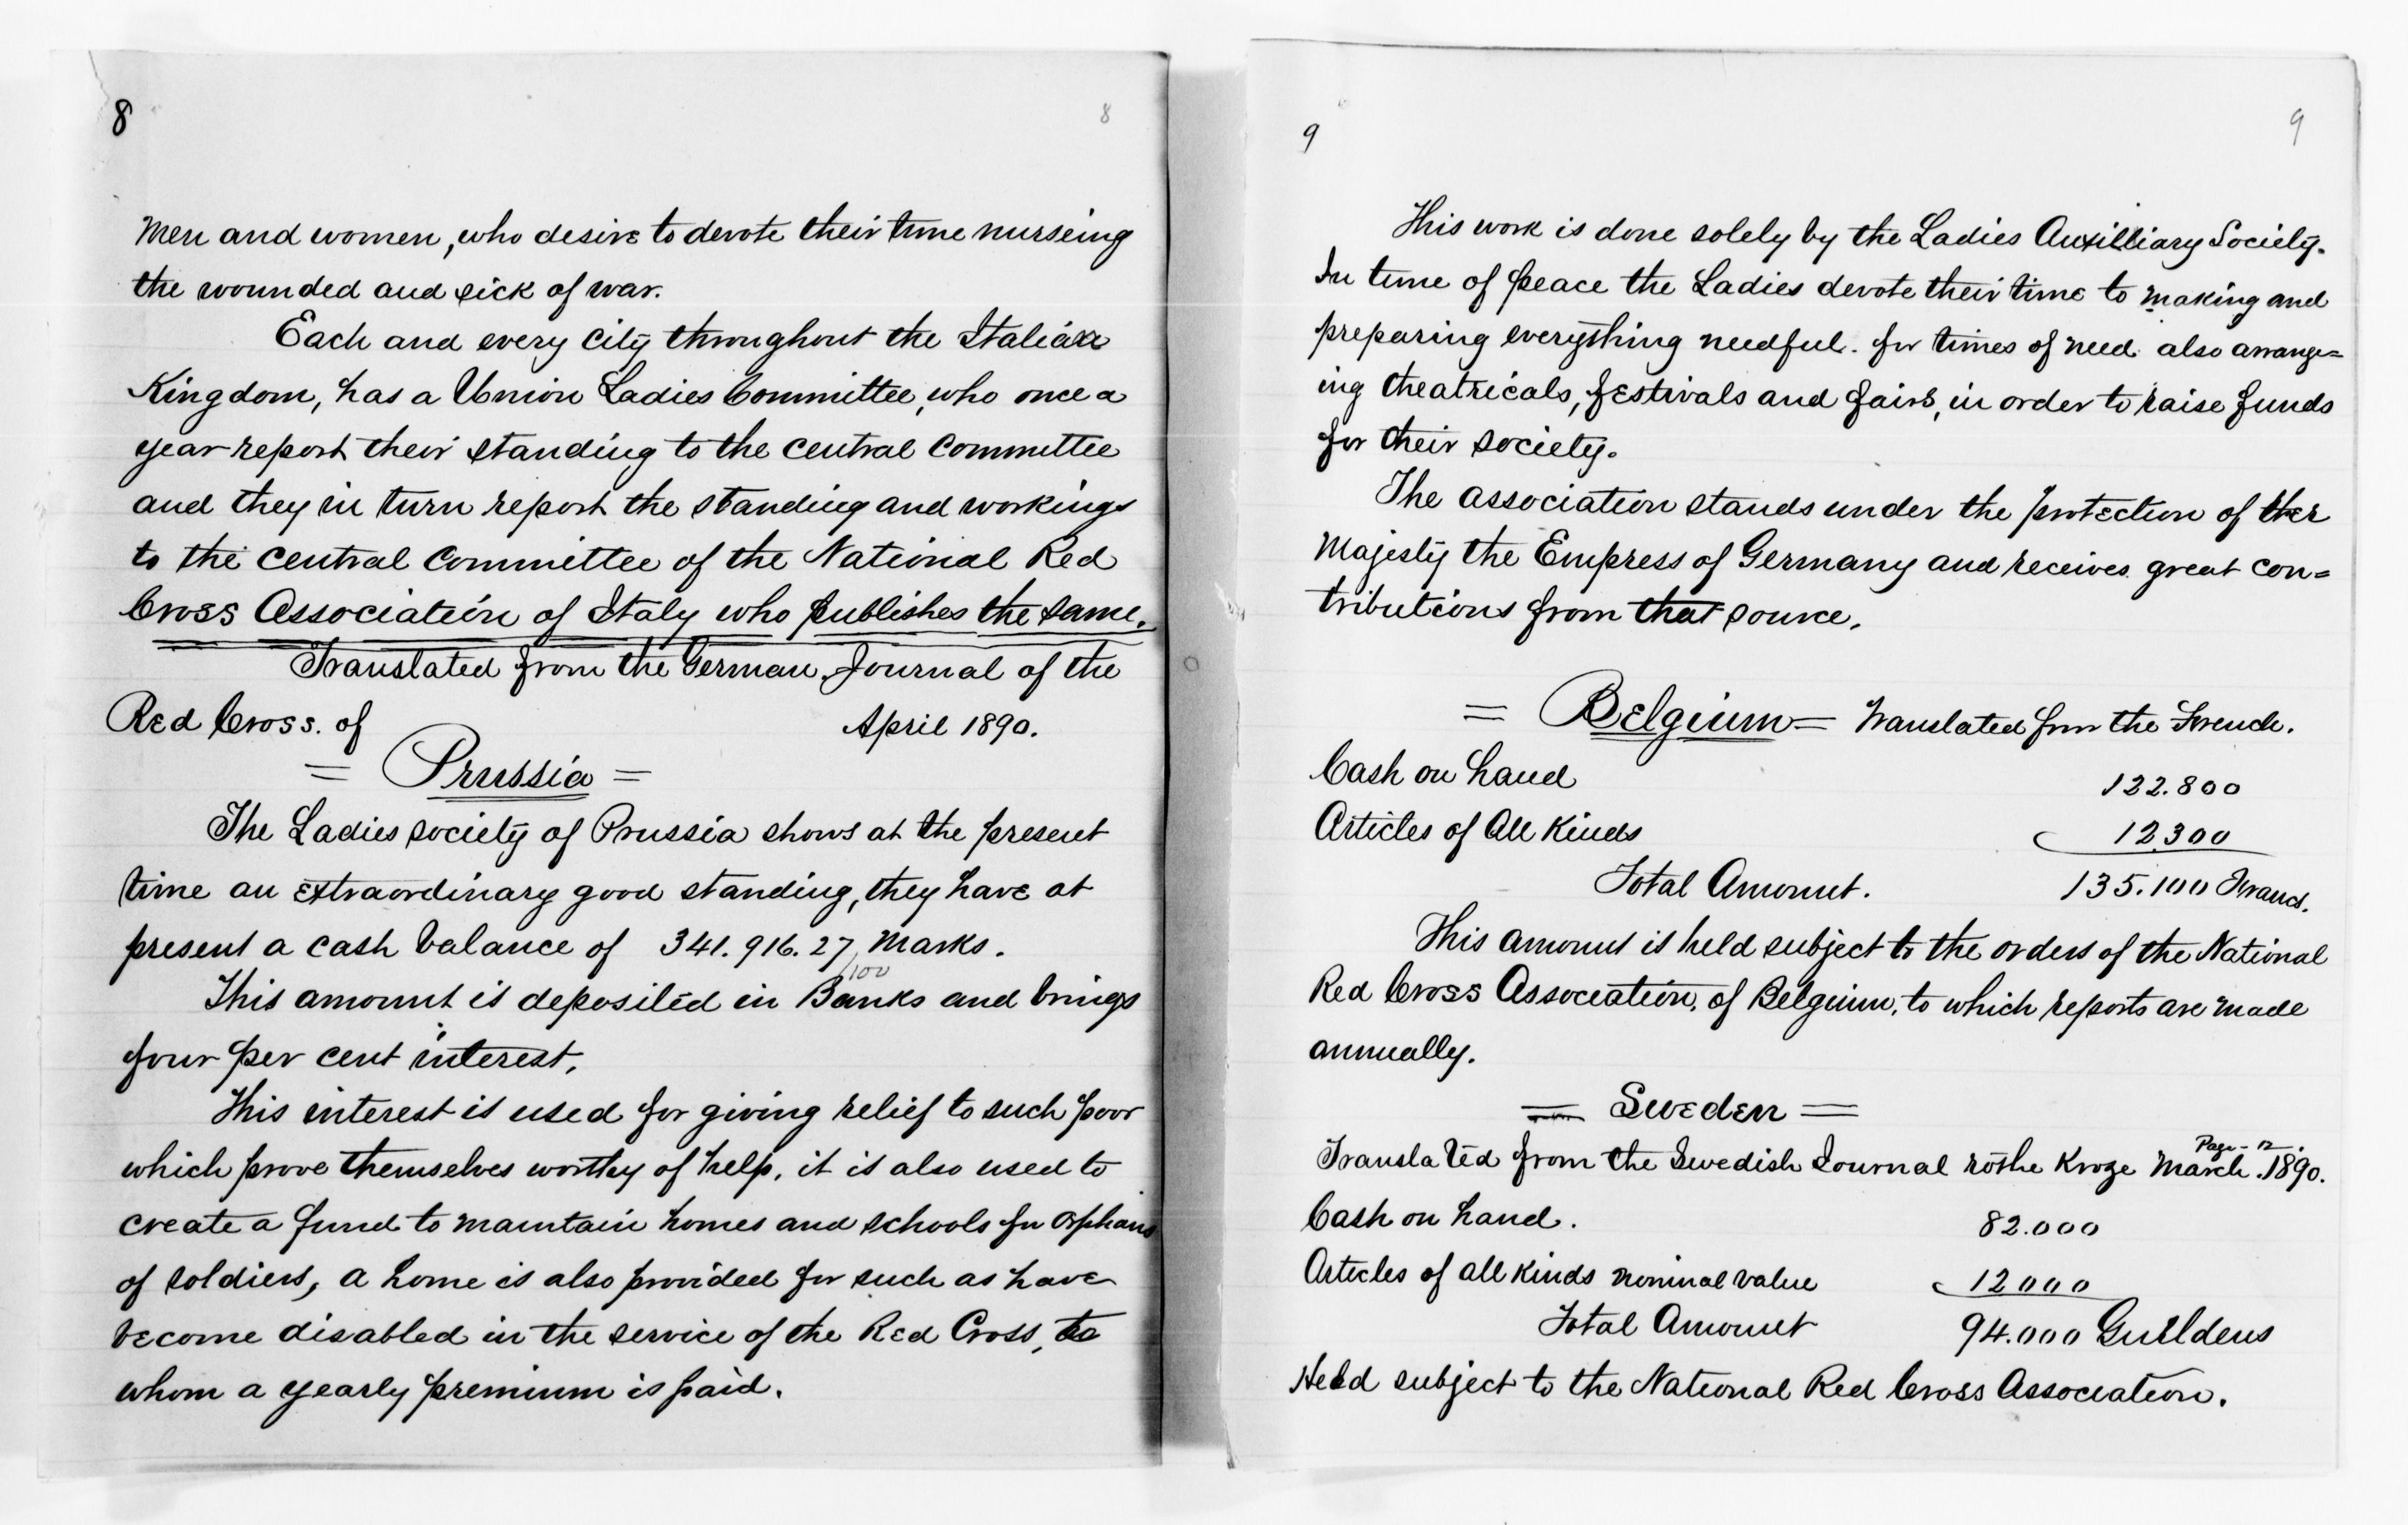 8
8
Men and women, who desire to devote their time nurseing
the wounded and sick of war.
Each and every city throughout the Italian
Kingdom, has a Union Ladies Committee, who once a
year report their standing to the central Committee
and they in turn report the standing and workings
to the central committee of the National Red
Cross Association of Italy who publishes the same.
Translated from the German Journal of the
Red Cross. of April 1890.
= Prussia =
The Ladies society of Prussia shows at the present
time an extraordinary good standing, they have at
present a cash balance of 341.916.27/100 Marks.
This amount is deposited in Banks and brings
four per cent interest.
This interest is used for giving relief to such poor
which prove themselves worthy of help, it is also used to
create a fund to maintain homes and schools for orphans
of soldiers, a home is also provided for such as have
become disabled in the service of the Red Cross, to
whom a yearly premium is paid.
9
9
This work is done solely by the Ladies Auxilliary Society.
In time of peace the Ladies devote their time to making and
preparing everything needful. for times of need also arrange=
ing theatricals, festivals and fairs, in order to raise funds
for their society.
The association stands under the protection of Her
Majesty the Empress of Germany and receives great con=
tributions from that source.
= Belgium = Translated from the French.
Cash on hand 122.800
Articles of All Kinds 12.300
Total Amount. 135.100 Francs.
This amount is held subject to the orders of the National
Red Cross Association, of Belgium, to which reports are made
annually.
= Sweden =
Page - 12.
Translated from the Swedish Journal röthe Kroze March. 1890.
Cash on hand. 82.000
Articles of all kinds nominal value 12000
Total Amount 94.000 Guildens
Held subject to the National Red Cross Association.